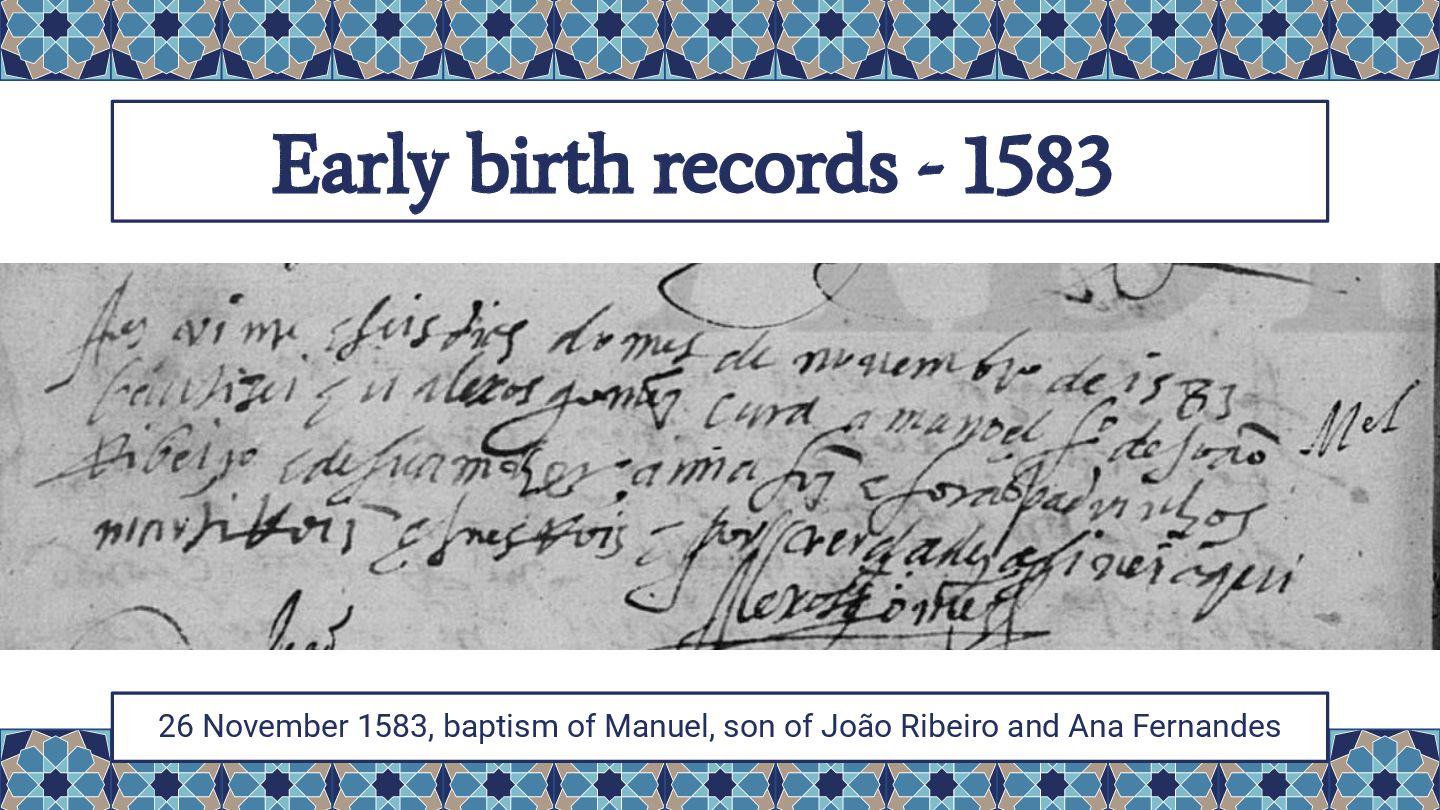 Early birth records - 1583
Aos vimte e seis dias do mes de novembro de 1583
bautizei eu alexos gomēz cura a manoel fº de João
Mel
Ribeiro e de sua molher anna frz e forão padrinhos
e por verdade asinei aqui
Alexos Gomēz
26 November 1583, baptism of Manuel, son of João Ribeiro and Ana Fernandes